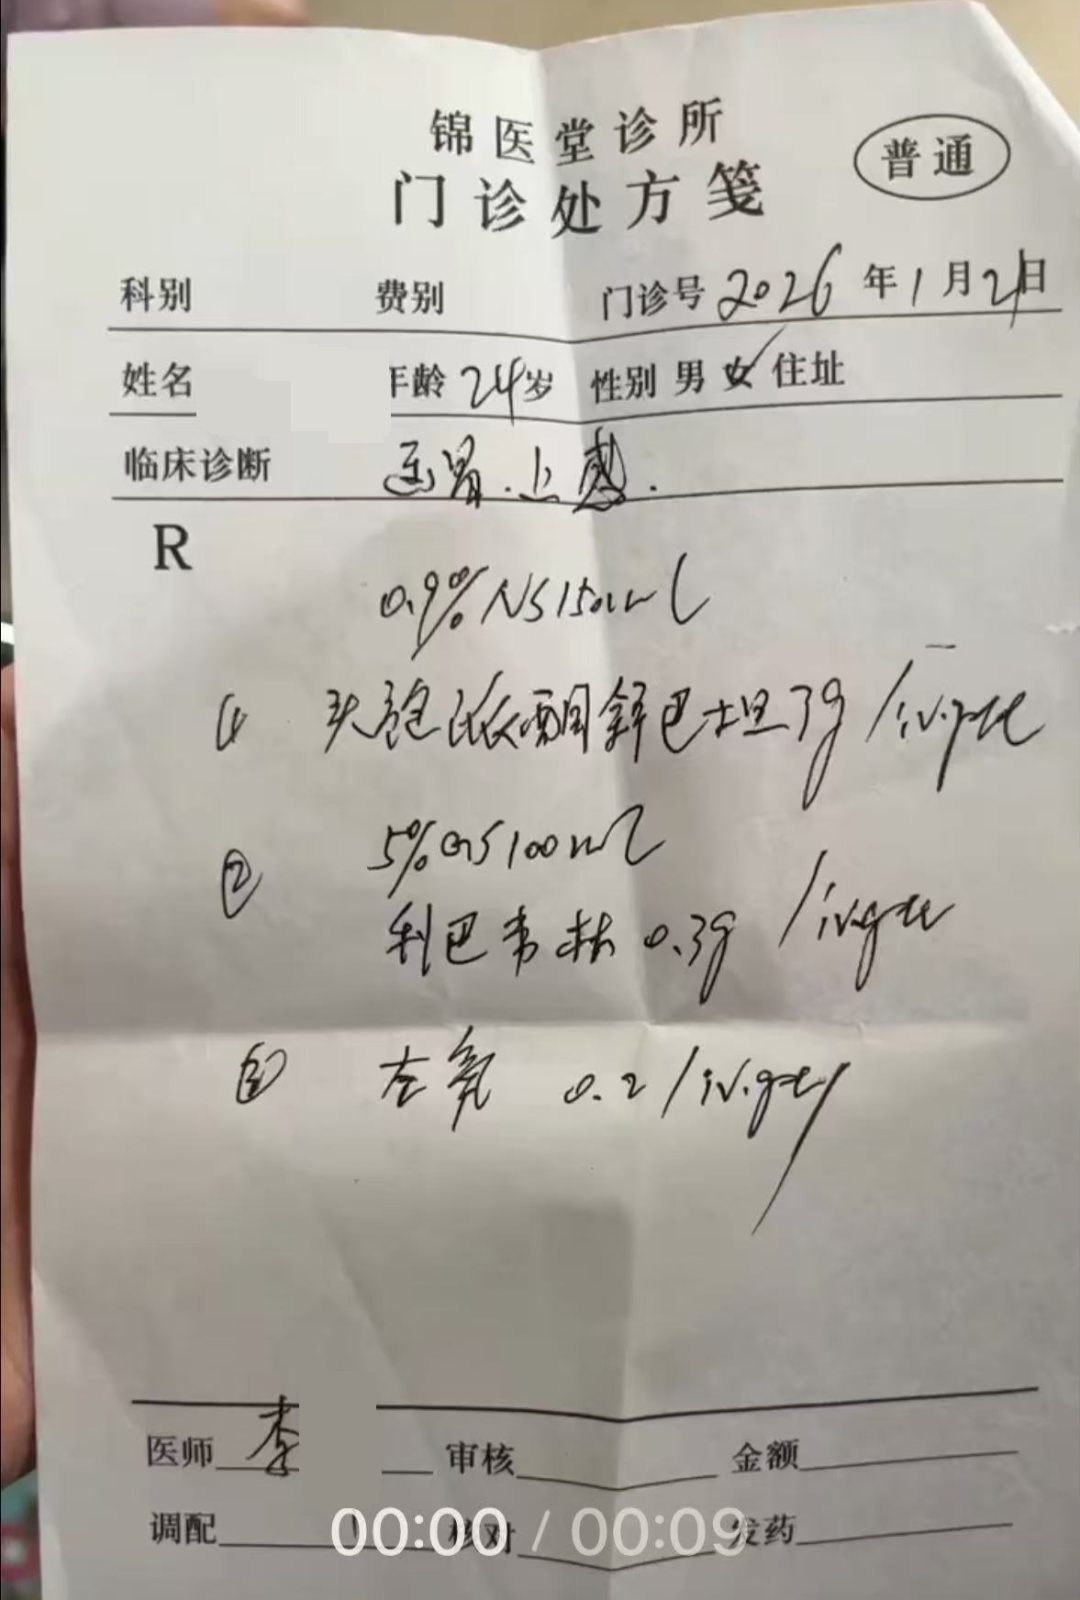 锦医堂诊所
门诊处方笺
普通
科别 费别 门诊号 2026年1月21日
姓名 年龄 24岁 性别 男 女✓ 住址
临床诊断 胃.上感.
R
0.9% NS 150ml
① 头孢哌酮舒巴坦 3g / iv.gtt
5% GS 100ml
② 利巴韦林 0.3g / iv.gtt
③ 左氧 0.2 / iv.gtt
医师 李 审核 金额
调配 核对 发药
00:00 / 00:09